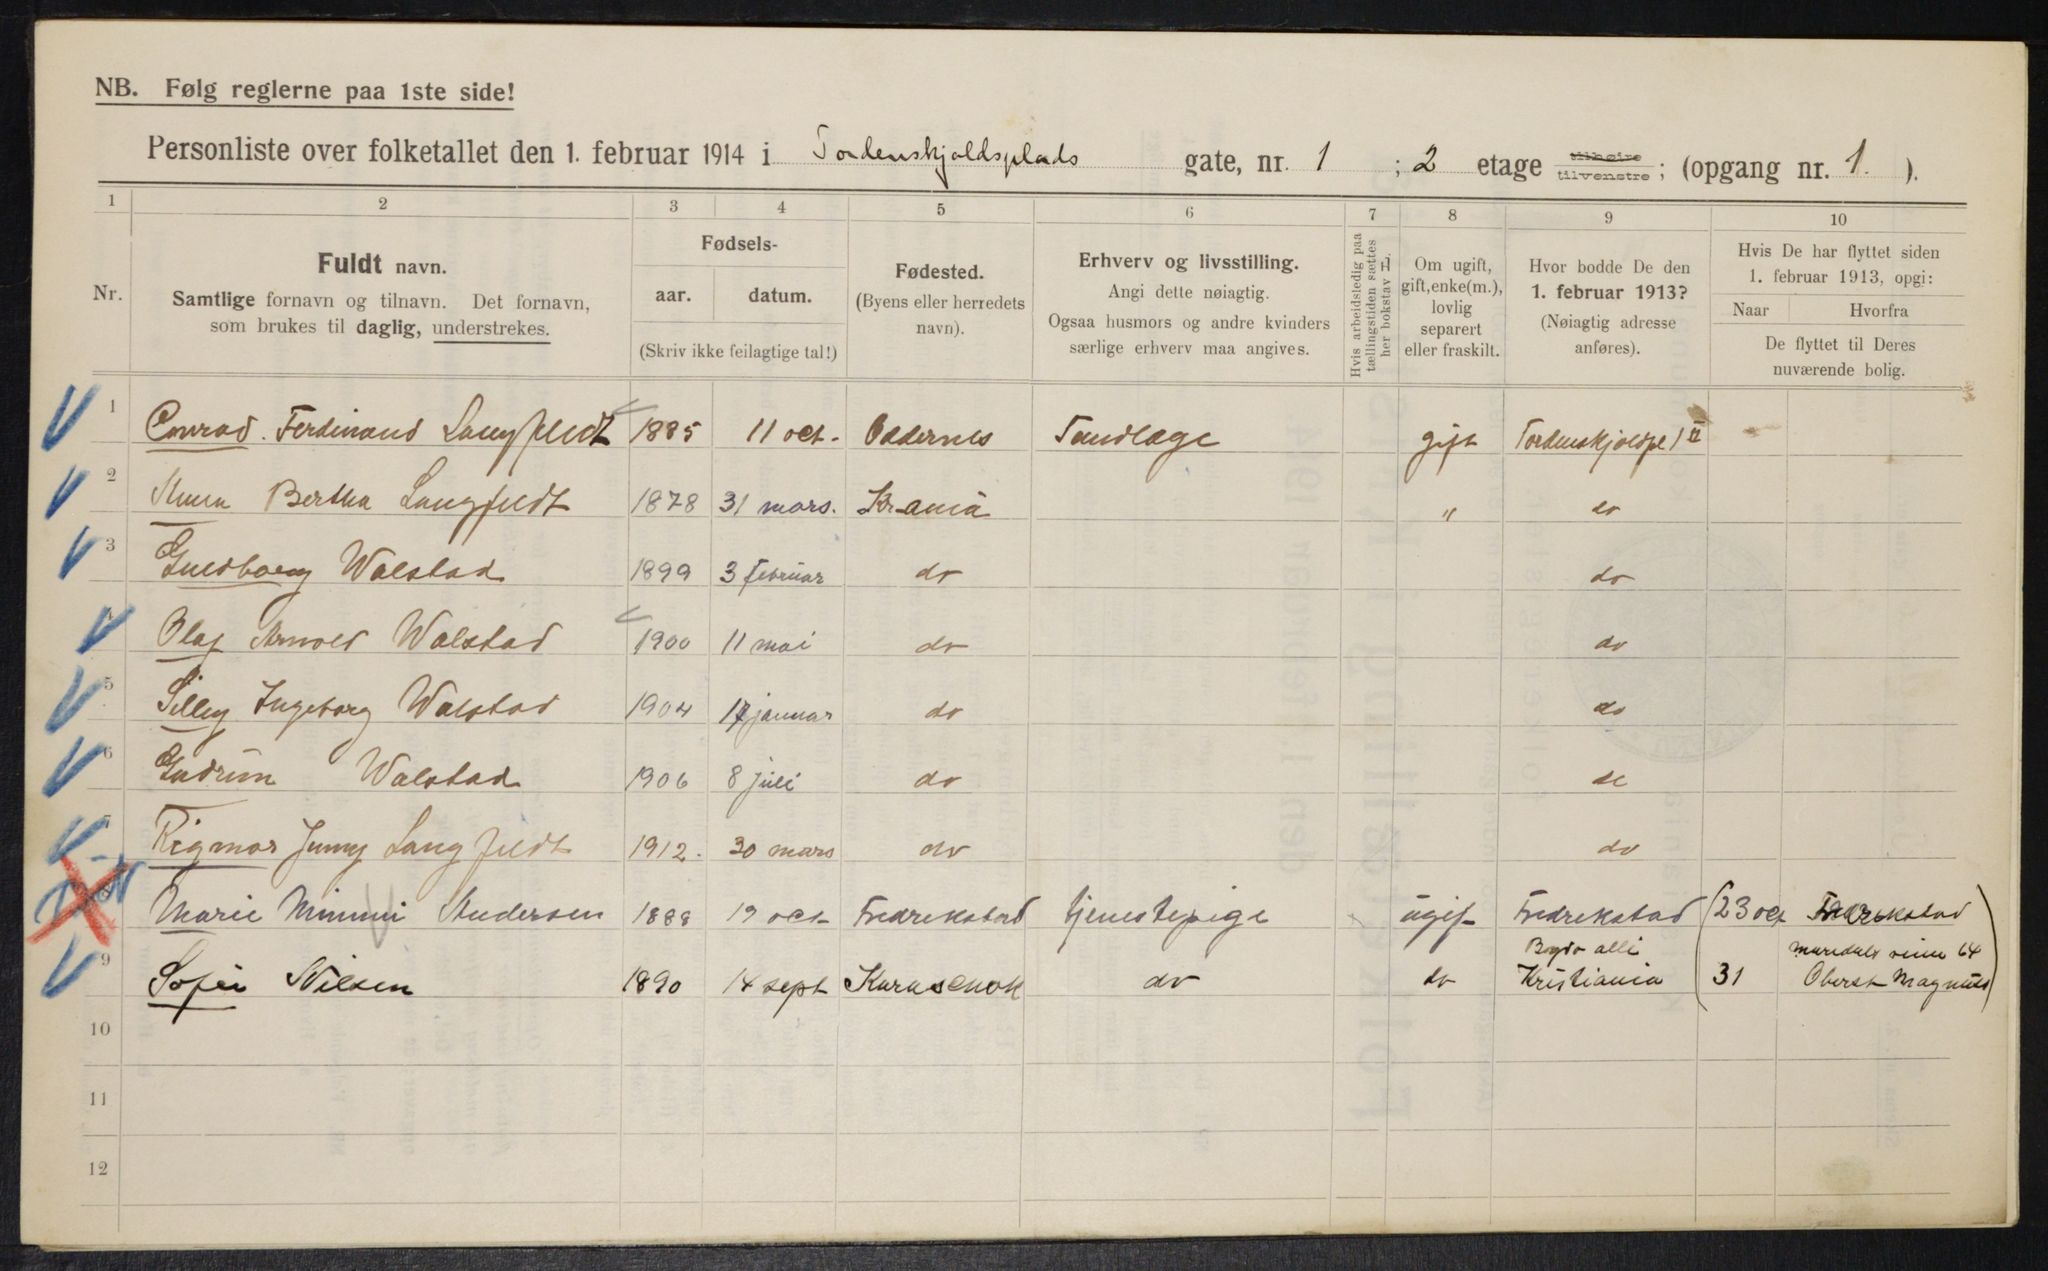 NB. Følg reglerne paa 1ste side!
Personliste over folketallet den 1. februar 1914 i Tordenskjoldsplads gate, nr. 1 ; 2 etage tilhøire tilvenstre ; (opgang nr. 1. ).
1 2 3 4 5 6 7 8 9 10
Nr.
Fuldt navn.
Samtlige fornavn og tilnavn. Det fornavn,
som brukes til daglig, understrekes.
Fødsels-
aar. datum.
(Skriv ikke feilagtige tal!)
Fødested.
(Byens eller herredets
navn).
Erhverv og livsstilling.
Angi dette nøiagtig.
Ogsaa husmors og andre kvinders
særlige erhverv maa angives.
Hvis arbeidsledig paa
tællingstiden sættes
her bokstav L.
Om ugift,
gift, enke(m.),
lovlig
separert
eller fraskilt.
Hvor bodde De den
1. februar 1913?
(Nøiagtig adresse
anføres).
Hvis De har flyttet siden
1. februar 1913, opgi:
Naar Hvorfra
De flyttet til Deres
nuværende bolig.
1 Conrad Ferdinand Langfeldt 1885 11 oct. Oddernes Tandlæge gift Tordenskjoldspl 1 II
2 Anna Bertha Langfeldt 1878 31 mars. Kr.ania " do
3 Guldborg Walstad 1899 3 februar do do
4 Olaf Arnold Walstad 1900 11 mai do do
5 Silley Ingeborg Walstad 1904 17 januar do do
6 Gudrun Walstad 1906 8 juli do do
7 Rigmor Jenny Langfeldt 1912. 30 mars do do
8 Marie Mimmi Andersen 1888 19 oct Fredrekstad tjenestepige ugift Fredrekstad (23 oct Fredrekstad)
9 Sofie Nilsen 1890 14 sept Karaschok do do Bogdo alli Kristiania (31 maridals veien 64 Oberst Magnus)
10
11
12